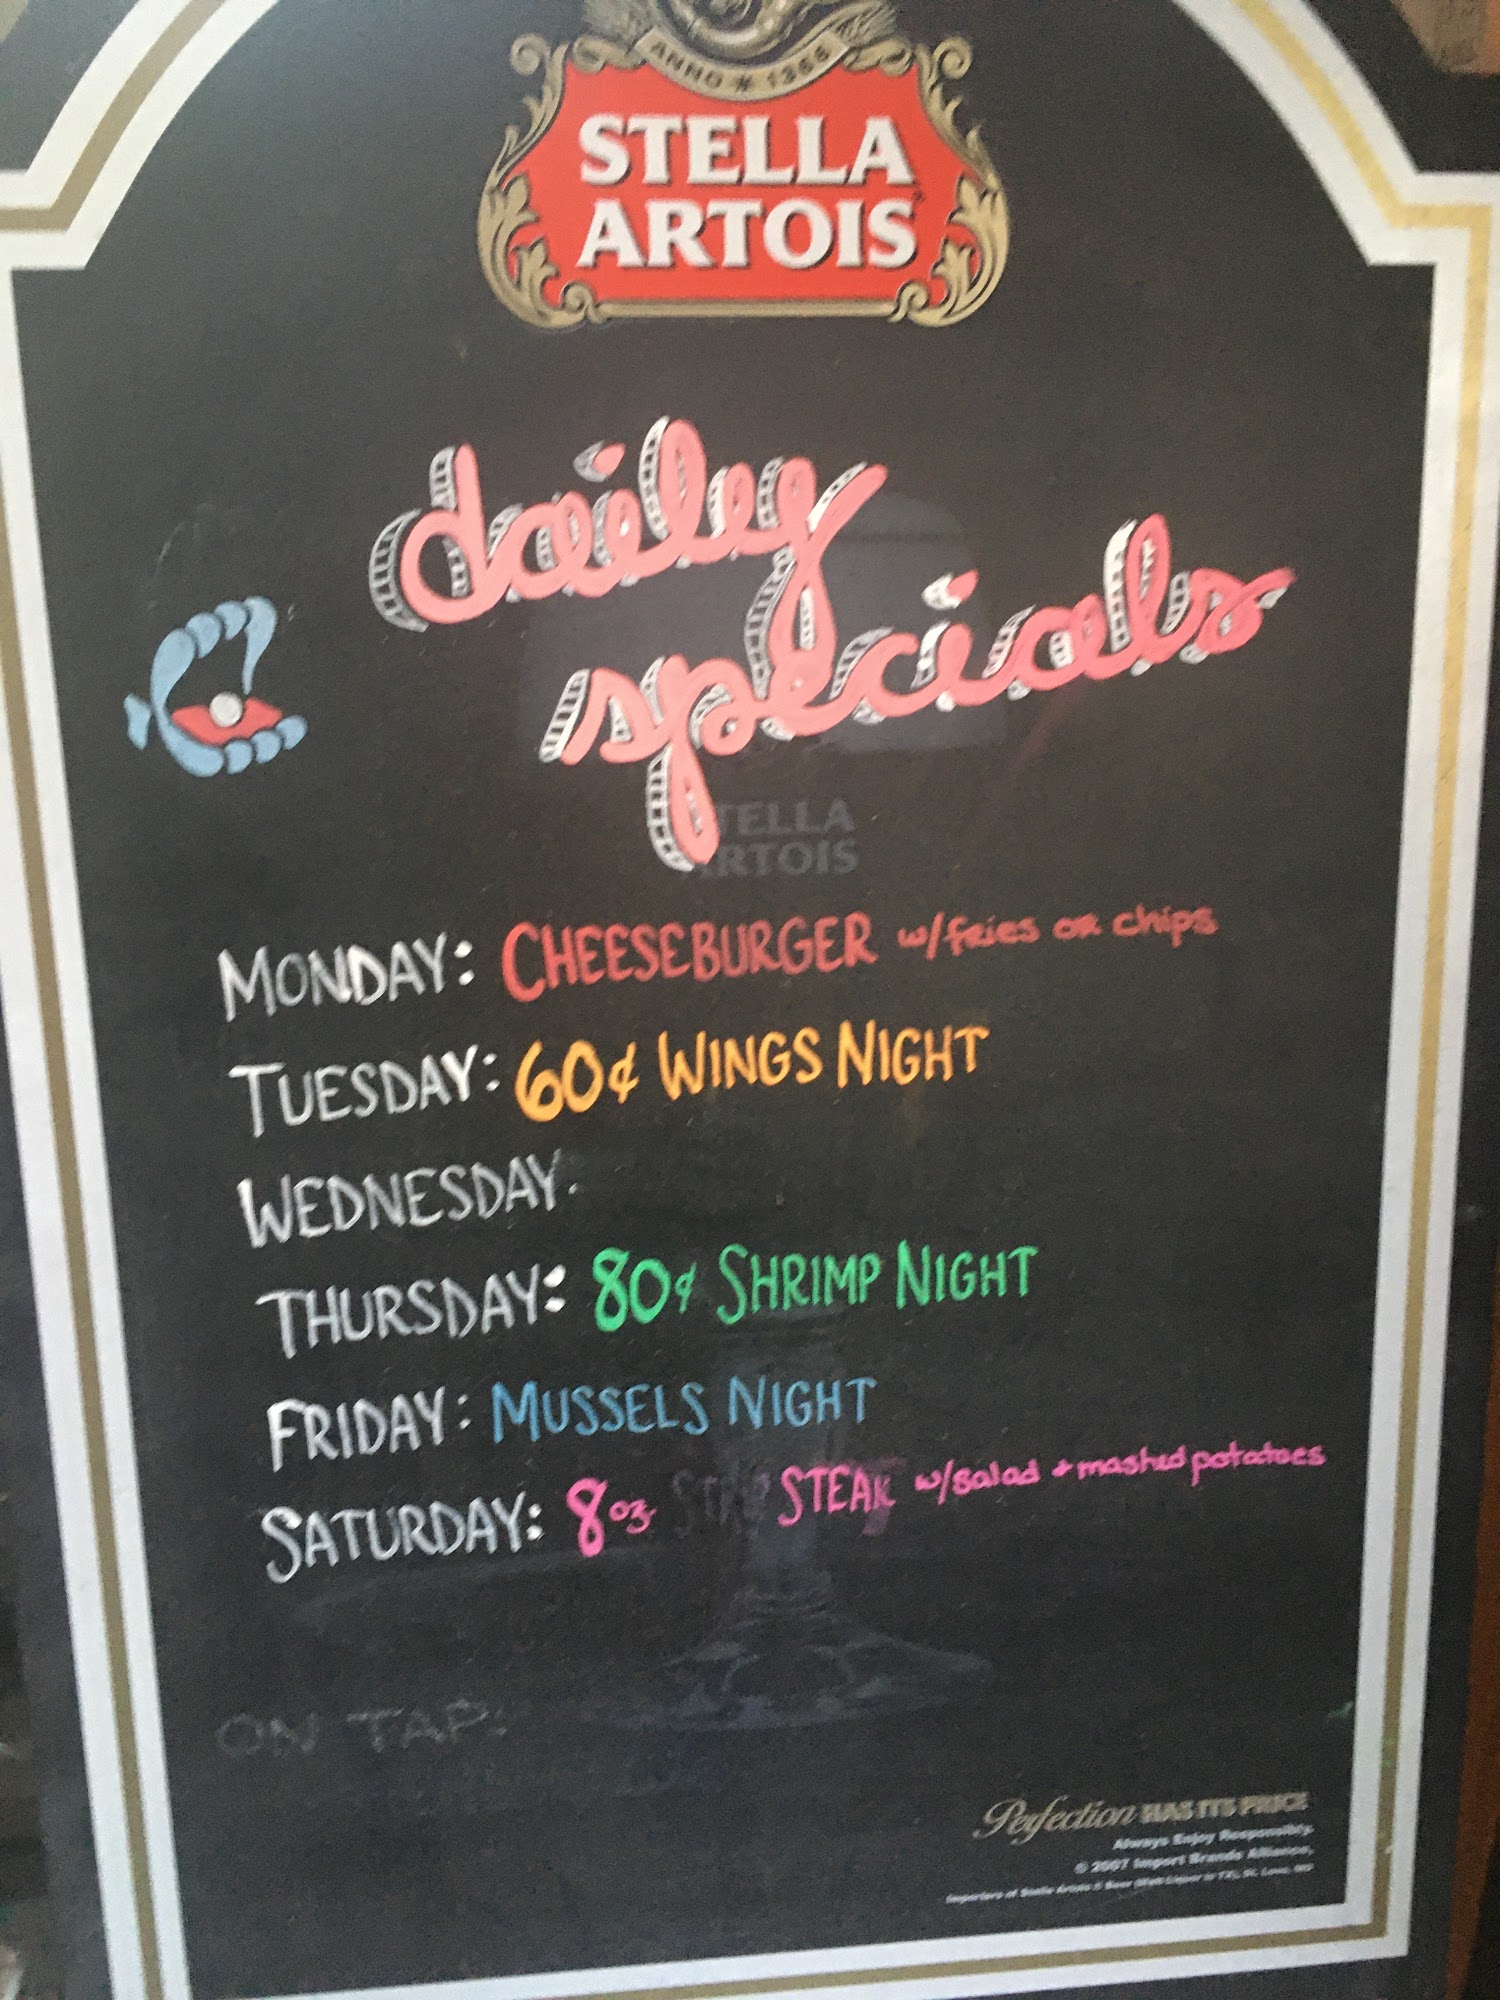 ANNO * 1366
STELLA
ARTOIS
daily
specials
TELLA
ARTOIS
MONDAY: CHEESEBURGER w/fries or chips
TUESDAY: 60¢ WINGS NIGHT
WEDNESDAY:
THURSDAY: 80¢ SHRIMP NIGHT
FRIDAY: MUSSELS NIGHT
SATURDAY: 8oz STEAK w/salad + mashed potatoes
ON TAP:
Perfection HAS ITS PRICE
Always Enjoy Responsibly.
© 2007 Import Brands Alliance,
Importers of Stella Artois® Beer (Malt Liquor in TX), St. Louis, MO